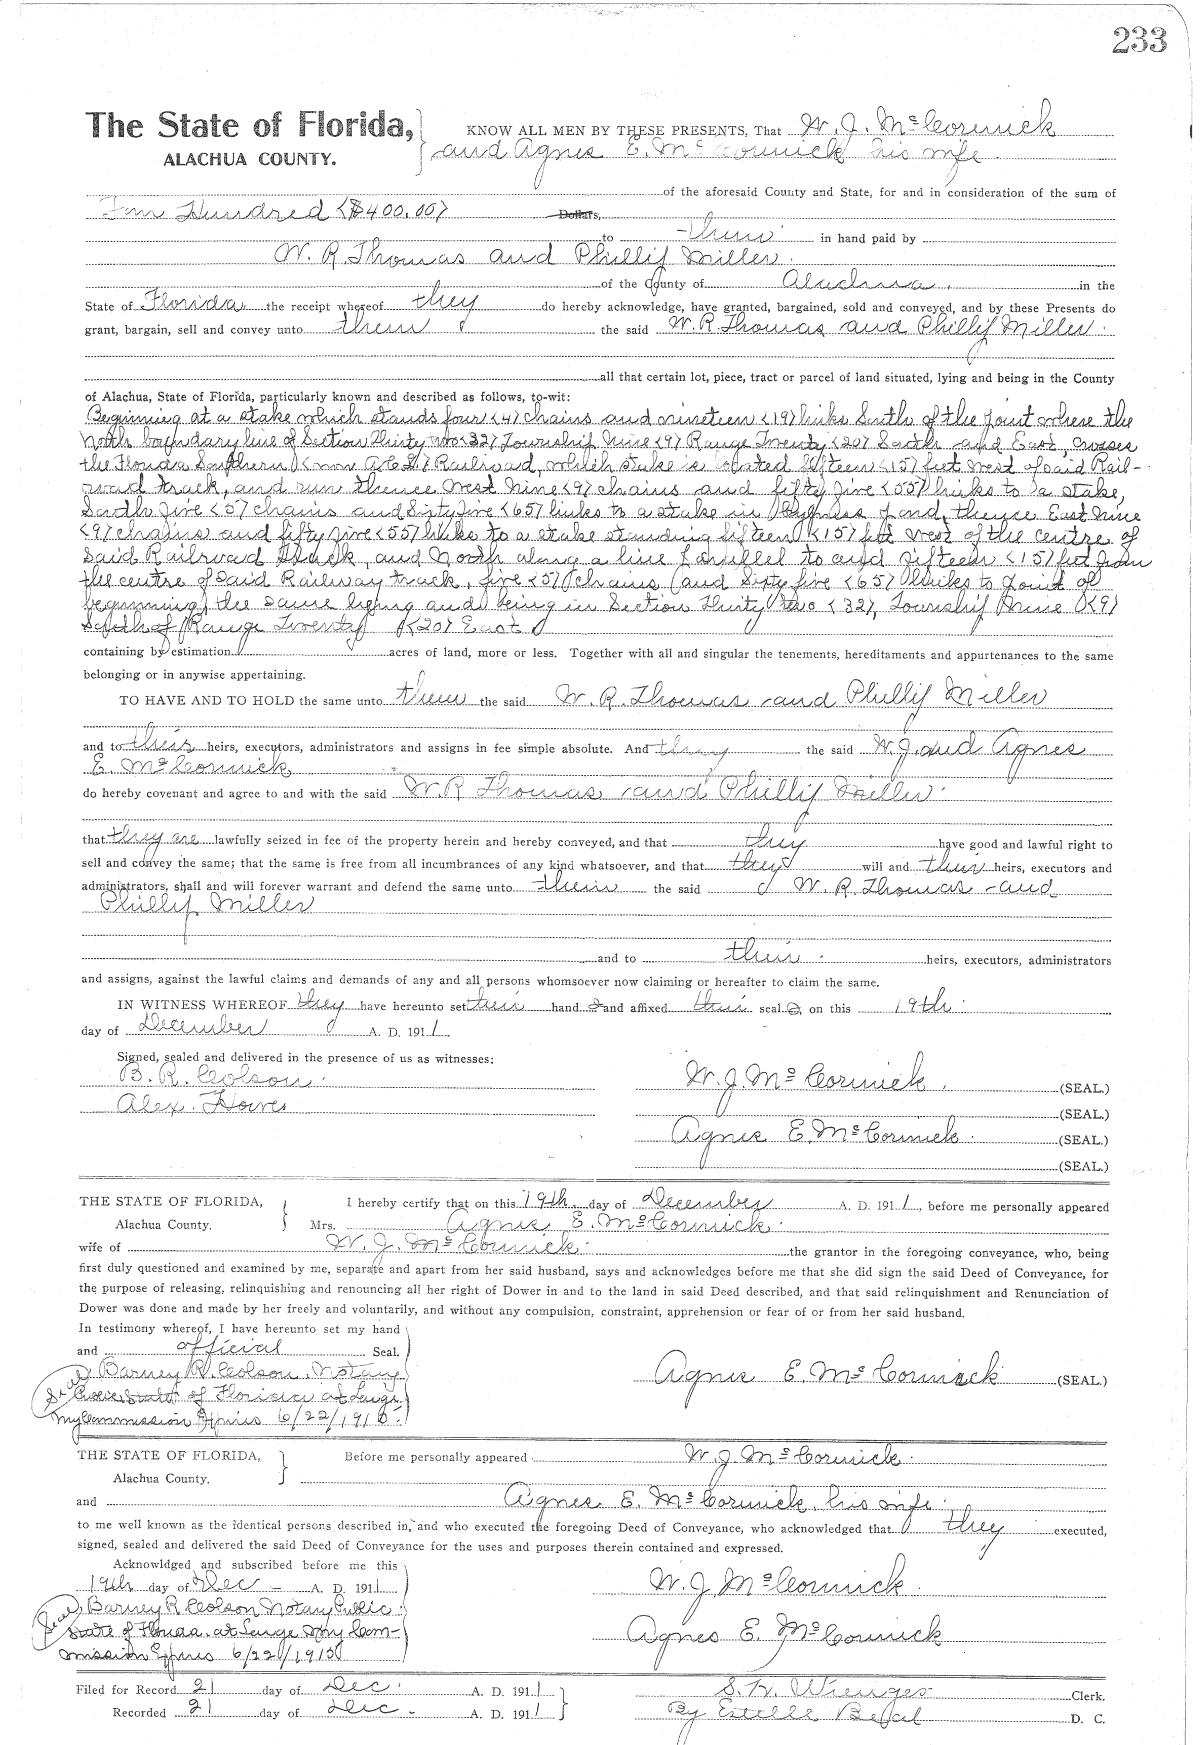 233
The State of Florida,
ALACHUA COUNTY.
KNOW ALL MEN BY THESE PRESENTS, That W. J. McCormick
and Agnes E. McCormick his wife
of the aforesaid County and State, for and in consideration of the sum of
Four Hundred <$400.00> Dollars,
to them in hand paid by
W. R. Thomas and Phillip Miller.
of the County of Alachua, in the
State of Florida the receipt whereof they do hereby acknowledge, have granted, bargained, sold and conveyed, and by these Presents do
grant, bargain, sell and convey unto them the said W. R. Thomas and Phillip Miller.
all that certain lot, piece, tract or parcel of land situated, lying and being in the County
of Alachua, State of Florida, particularly known and described as follows, to-wit:
Beginning at a stake which stands four <4> chains and nineteen <19> links South of the point where the
North boundary line of Section Thirty two <32> Township Nine <9> Range Twenty <20> South and East, crosses
the Florida Southern <now A.C.L.> Railroad, which stake is located fifteen <15> feet West of said Rail-
road track, and run thence West Nine <9> chains and fifty five <55> links to a stake,
South five <5> chains and Sixty five <65> links to a stake in of and, thence East Nine
<9> chains and fifty five <55> links to a stake standing fifteen <15> feet West of the centre of
said Railroad track, and North along a line parallel to and fifteen <15> feet from
the centre of said Railway track, five <5> chains and Sixty five <65> links to point of
beginning, the same lying and being in Section Thirty two <32>, Township Nine <9>
South of Range Twenty <20> East
containing by estimation acres of land, more or less. Together with all and singular the tenements, hereditaments and appurtenances to the same
belonging or in anywise appertaining.
TO HAVE AND TO HOLD the same unto them the said W. R. Thomas and Phillip Miller
and to their heirs, executors, administrators and assigns in fee simple absolute. And they the said W. J. and Agnes
E. McCormick
do hereby covenant and agree to and with the said W. R. Thomas and Phillip Miller.
that they are lawfully seized in fee of the property herein and hereby conveyed, and that they have good and lawful right to
sell and convey the same; that the same is free from all incumbrances of any kind whatsoever, and that they will and their heirs, executors and
administrators, shall and will forever warrant and defend the same unto them the said W. R. Thomas and
Phillip Miller
and to their heirs, executors, administrators
and assigns, against the lawful claims and demands of any and all persons whomsoever now claiming or hereafter to claim the same.
IN WITNESS WHEREOF they have hereunto set their hand s and affixed their seal s, on this 19th
day of December A. D. 1911.
Signed, sealed and delivered in the presence of us as witnesses:
B. R. Colson.
Alex. Howes
W. J. McCormick. (SEAL.)
(SEAL.)
Agnes E. McCormick. (SEAL.)
(SEAL.)
THE STATE OF FLORIDA,
Alachua County.
I hereby certify that on this 19th day of December A. D. 1911, before me personally appeared
Mrs. Agnes E. McCormick.
wife of W. J. McCormick the grantor in the foregoing conveyance, who, being
first duly questioned and examined by me, separate and apart from her said husband, says and acknowledges before me that she did sign the said Deed of Conveyance, for
the purpose of releasing, relinquishing and renouncing all her right of Dower in and to the land in said Deed described, and that said relinquishment and Renunciation of
Dower was done and made by her freely and voluntarily, and without any compulsion, constraint, apprehension or fear of or from her said husband.
In testimony whereof, I have hereunto set my hand
and official Seal.
Seal Barney R. Colson. Notary
Public State of Florida at Large
My Commission Expires 6/22/1915.
Agnes E. McCormick (SEAL.)
THE STATE OF FLORIDA,
Alachua County.
Before me personally appeared W. J. McCormick.
and Agnes E. McCormick, his wife.
to me well known as the identical persons described in, and who executed the foregoing Deed of Conveyance, who acknowledged that they executed,
signed, sealed and delivered the said Deed of Conveyance for the uses and purposes therein contained and expressed.
Acknowldged and subscribed before me this
19th day of Dec A. D. 1911
Seal Barney R Colson Notary Public
State of Florida. at Large My Com-
mission Expires 6/22/1915
W. J. McCormick
Agnes E. McCormick
Filed for Record 21 day of Dec. A. D. 1911
Recorded 21 day of Dec - A. D. 1911
S. H. Wienges Clerk.
By Estelle D. C.